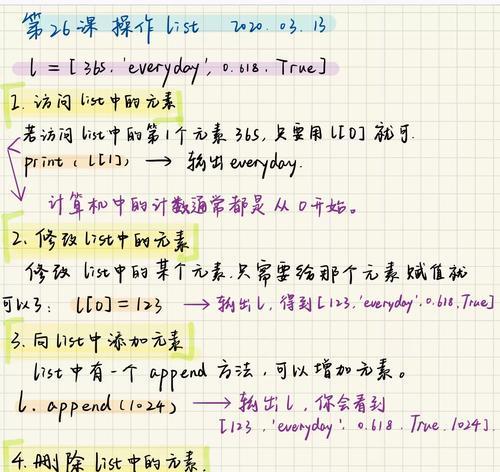 第26课 操作 list 2020.03.13
l = [365, 'everyday', 0.618, True]
1. 访问 list 中的元素
若访问 list 中的第1个元素 365, 只要用 l[0] 就可.
print(l[1]) → 输出 everyday.
计算机中的计数通常都是从0开始。
2. 修改 list 中的元素
修改 list 中的某个元素,只需要给那个元素赋值就
可以了: l[0] = 123 → 输出 l, 得到[123,'everyday',0.618,True]
3. 向 list 中添加元素
list 中有一个 append 方法,可以增加元素。
l. append(1024) → 输出 l, 你会看到
[123,'everyday', 0.618, True, 1024].
4. 删除 list 中的元素.